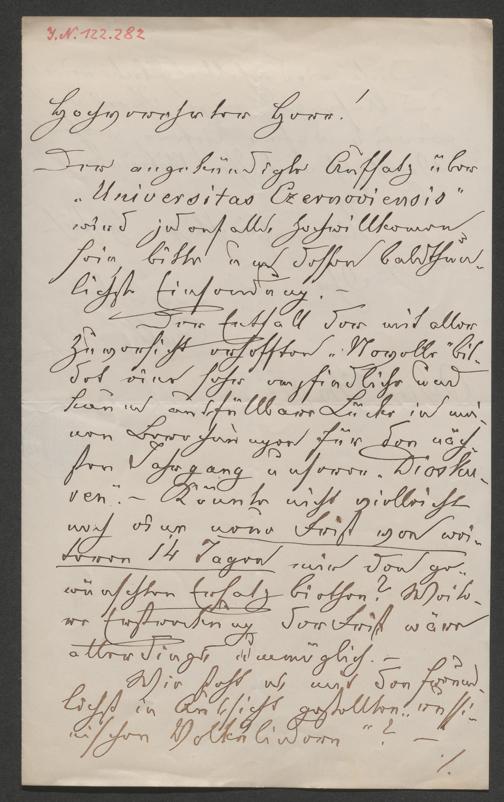 J.N. 122.282
Hochverehrter Herr!
Der angekündigte Aufsatz über
„Universitas Czernoviensis"
wird jedenfalls hochwillkommen
sein bitte um dessen baldthun-
lichste Einsendung. –
Der Entfall der mit aller
Zuversicht erhofften „Novelle" bil-
det eine sehr empfindliche und
kaum ausfüllbare Lücke in mei-
nen Berechnungen für den näch-
sten Jahrgang unserer „Diosku-
ren". – Könnte nicht vielleicht
noch eine neue Frist von wei-
teren 14 Tagen mir den ge-
wünschten Ersatz bieten? Weite-
re Erstreckung der Frist wäre
allerdings unmöglich. –
Wie steht es mit den freund-
lichst in Aussicht gestellten
Volksliedern"? –
./.